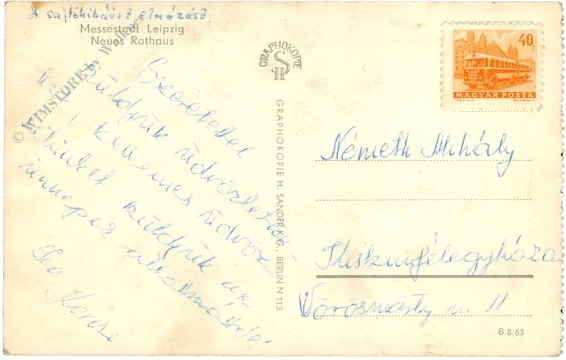 A sajtóhibáért elnézést.
Messestadt Leipzig
Neues Rathaus
© WIMSTORE by Walker
Szeretettel
küldjük üdvözletünket
kellemes
küldjük az
ünnepek alkalmából
GRAPHOKOPIE
H S
GRAPHOKOPIE H. SANDER K.G., BERLIN N 113
40
MAGYAR POSTA
Németh Mihály
Kiskunfélegyháza
Vörösmarty u. 11
B 8/63